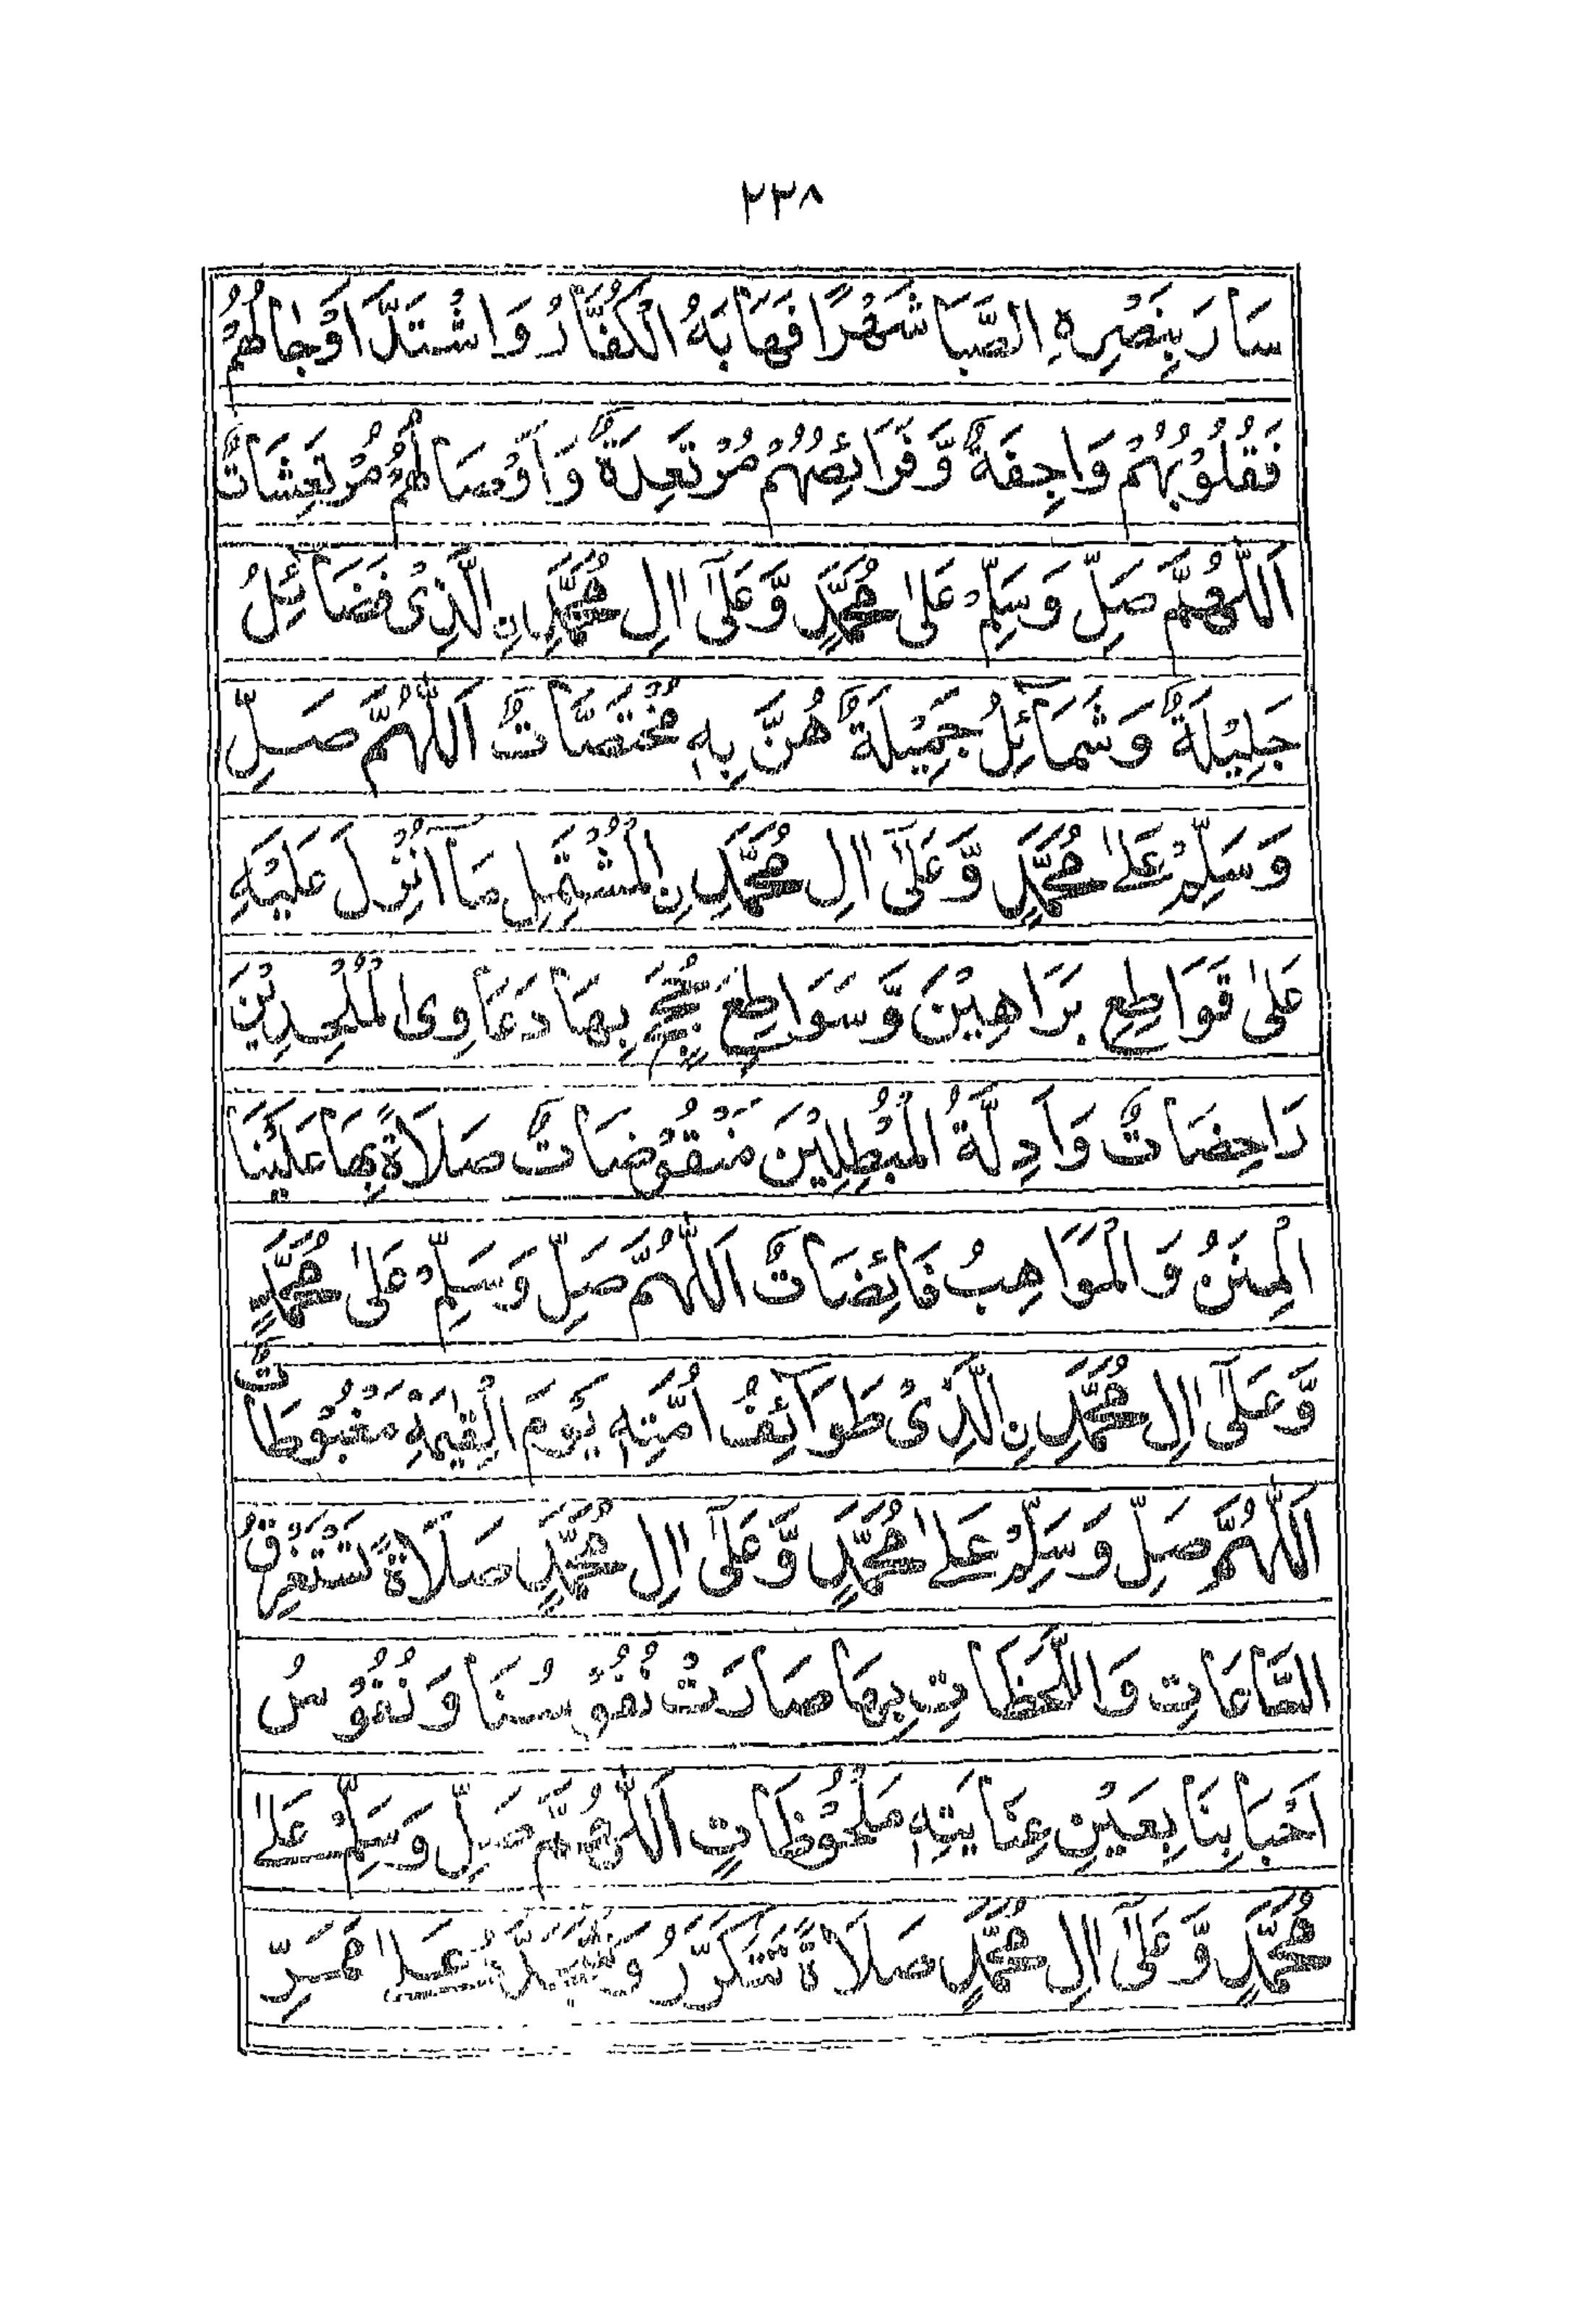 ٢٣٨
سَارَ بِنَصْرِهِ الصَّبَا شَهْرًا فَهَابَهُ الْكُفَّارُ وَاشْتَدَّ اَوْجَالُهُمْ
فَقُلُوْبُهُمْ وَاجِفَةٌ وَّفَرَائِصُهُمْ مُرْتَعِدَةٌ وَاَوْصَالُهُمْ مُرْتَعِشَاتٌ
اَللّٰهُمَّ صَلِّ وَسَلِّمْ عَلٰى مُحَمَّدٍ وَّعَلٰٓى اٰلِ مُحَمَّدِ نِ الَّذِىْ فَضَائِلُ
جَلِيْلَةٌ وَشَمَآئِلُ جَمِيْلَةٌ هُنَّ بِهٖ مُخْتَصَّاتٌ اَللّٰهُمَّ صَلِّ
وَسَلِّمْ عَلٰى مُحَمَّدٍ وَّعَلٰٓى اٰلِ مُحَمَّدِ نِ الْمُشْتَمِلِ مَآ اُنْزِلَ عَلَيْهِ
عَلٰى قَوَاطِعِ بَرَاهِيْنَ وَّسَوَاطِعِ حُجَجٍ بِهَا دَعَاوِى الْمُلْحِدِيْنَ
دَاحِضَاتٌ وَاَدِلَّةُ الْمُبْطِلِيْنَ مَنْقُوْضَاتٌ صَلَاةً بِهَا عَلَيْنَا
الْمِنَنُ وَالْمَوَاهِبُ فَائِضَاتٌ اَللّٰهُمَّ صَلِّ وَسَلِّمْ عَلٰى مُحَمَّدٍ
وَّعَلٰٓى اٰلِ مُحَمَّدِ نِ الَّذِىْ طَوَآئِفُ اُمَّتِهٖ يَوْمَ الْقِيٰمَةِ مَغْبُوْطَاتٌ
اَللّٰهُمَّ صَلِّ وَسَلِّمْ عَلٰى مُحَمَّدٍ وَّعَلٰٓى اٰلِ مُحَمَّدٍ صَلَاةً تَسْتَغْرِقُ
السَّاعَاتِ وَاللَّحَظَاتِ بِهَا صَارَتْ نُفُوْسُنَا وَنُفُوْسُ
اَحْبَابِنَا بِعَيْنِ عِنَايَتِهٖ مَلْحُوْظَاتٍ اَللّٰهُمَّ صَلِّ وَسَلِّمْ عَلٰى
مُحَمَّدٍ وَّعَلٰٓى اٰلِ مُحَمَّدٍ صَلَاةً تَتَكَرَّرُ عَلٰى مَمَرِّ